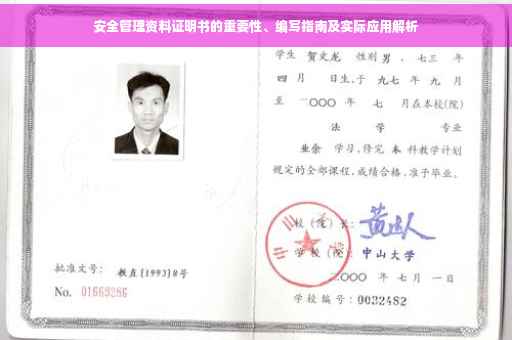 安全管理资料证明书的重要性、编写指南及实际应用解析
学生 贺文龙 性别 男 ,七三 年
四 月 日生,于 九七 年 九 月
至 二〇〇〇 年 七 月在本校(院)
法 学 专业
业余 学习,修完 本 科教学计划
规定的全部课程,成绩合格,准予毕业。
校(院)长:
学 校(院): 中山大学
二〇〇〇 年 七 月 一 日
学校编号: 0032482
批准文号: 教直[1993]8号
No. 01669286